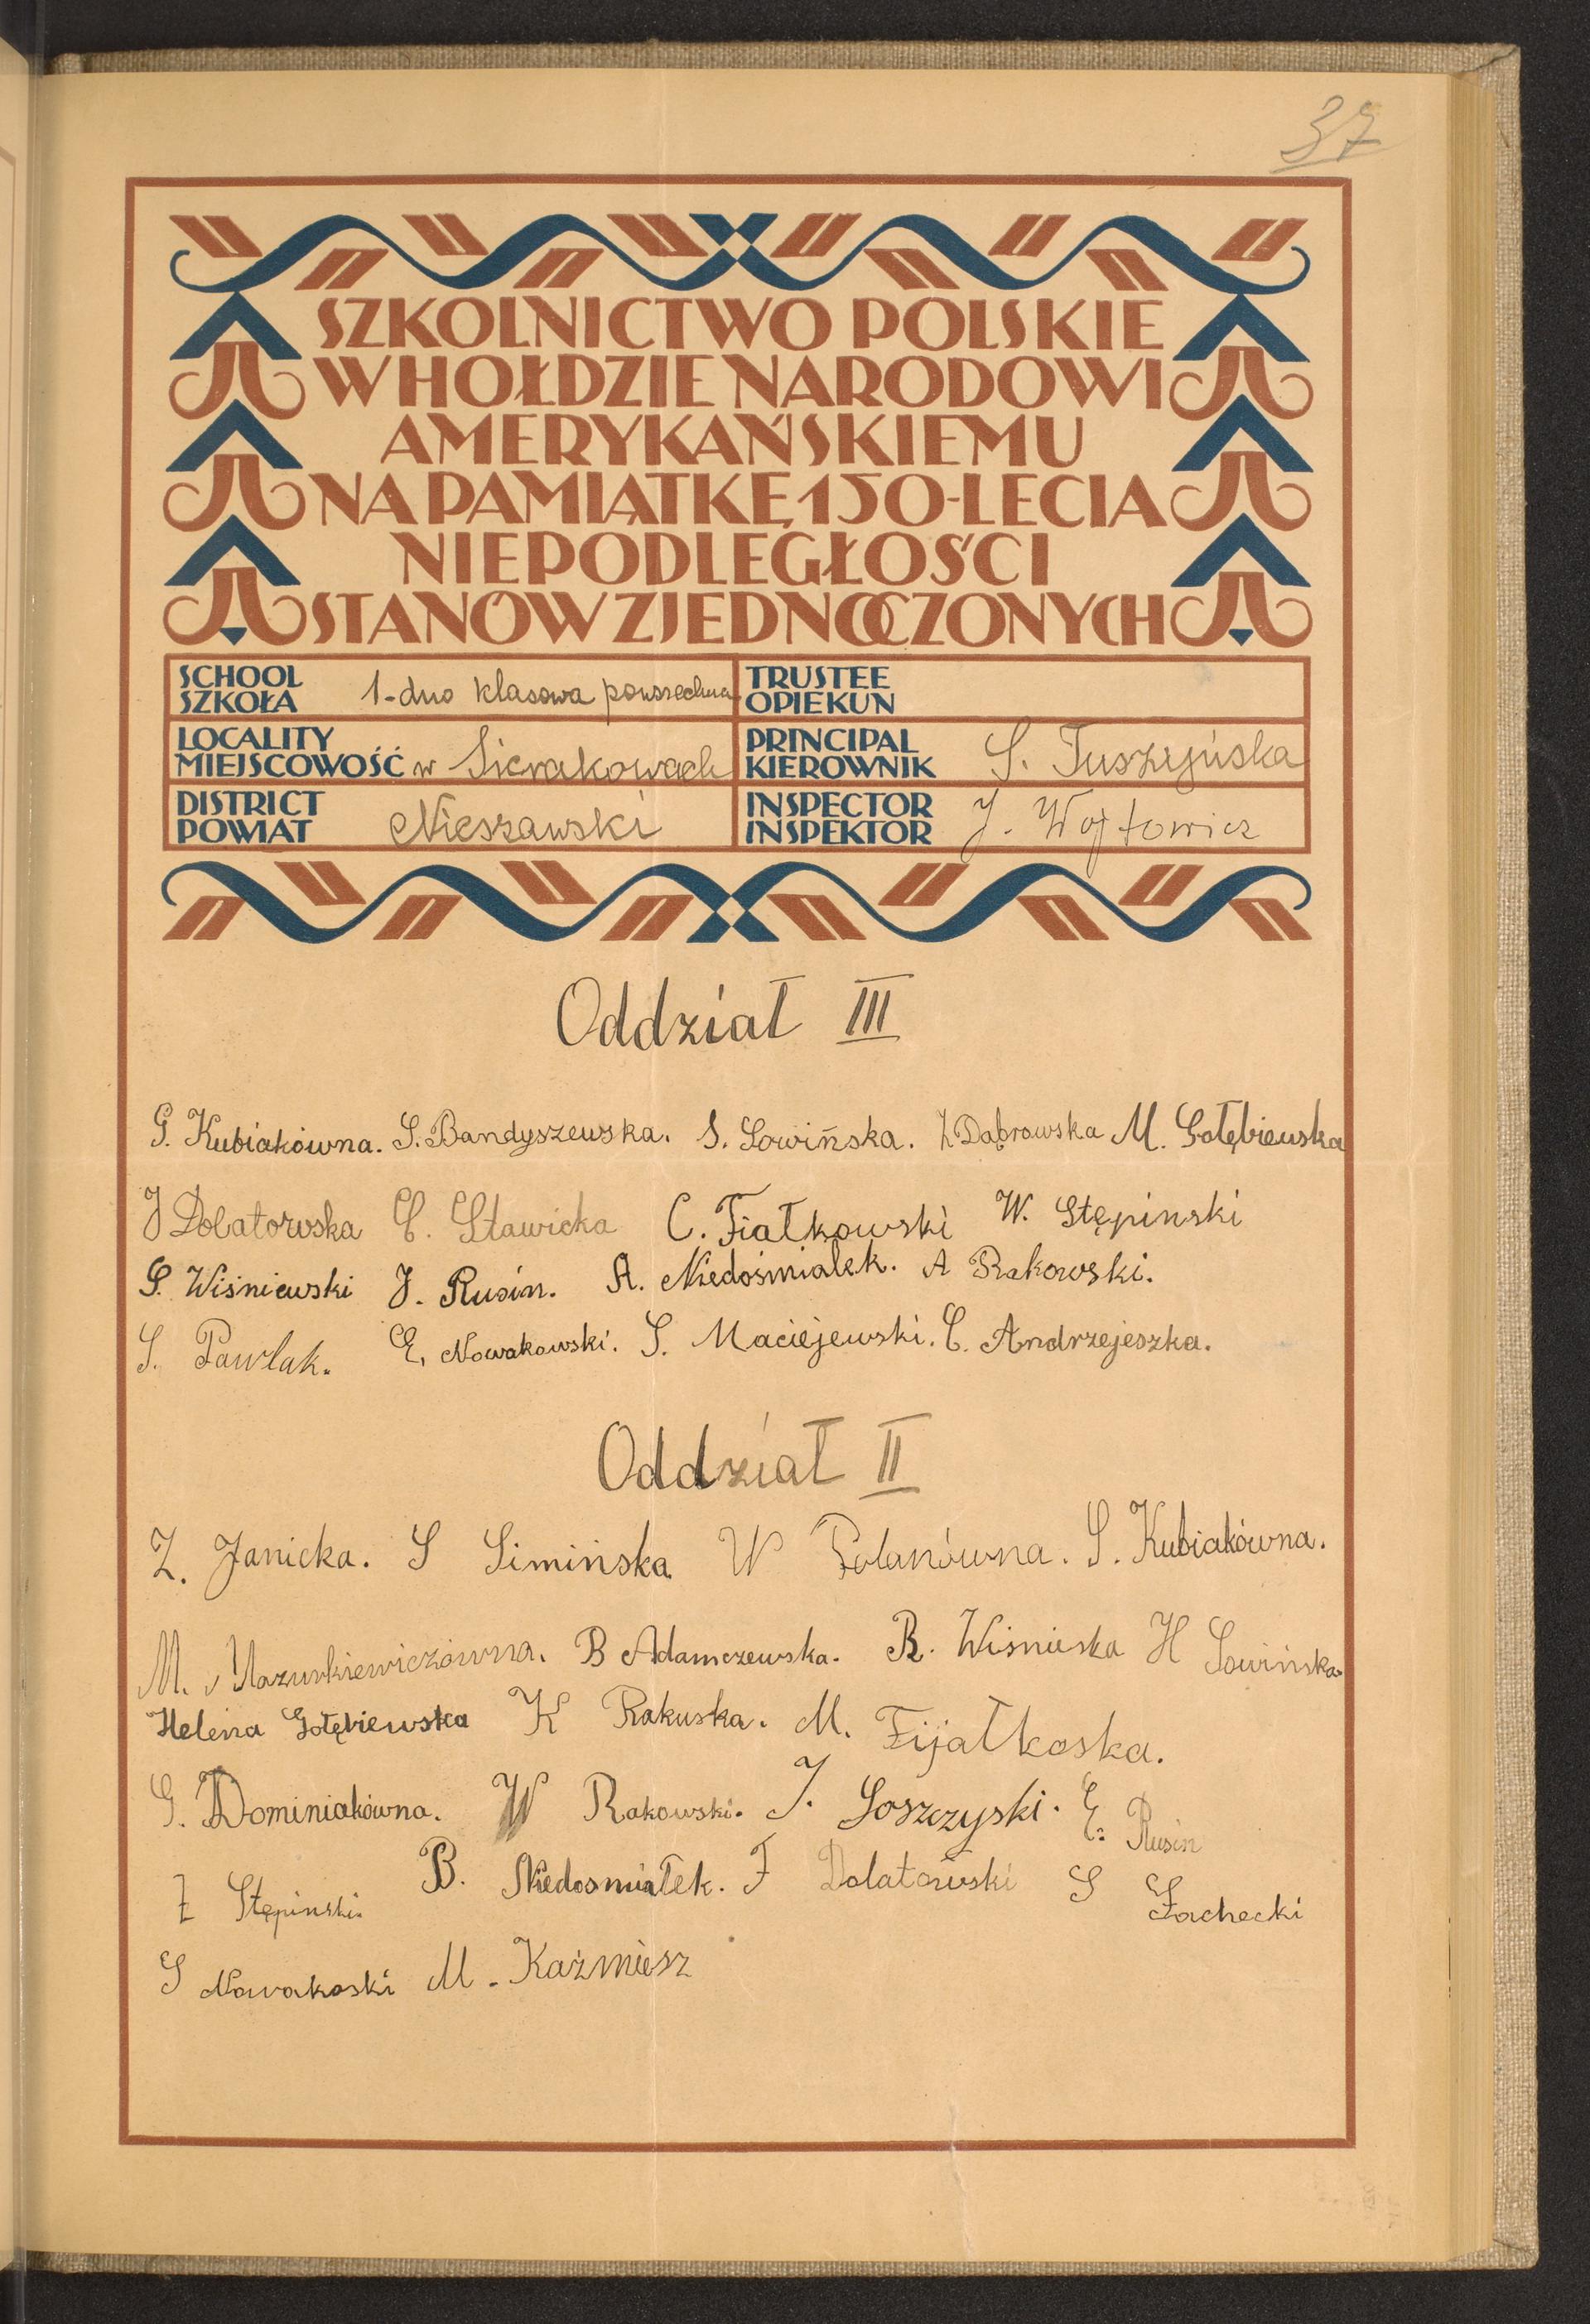 37
SZKOLNICTWO POLSKIE
W HOŁDZIE NARODOWI
AMERYKAŃSKIEMU
NA PAMIĄTKĘ 150-LECIA
NIEPODLEGŁOŚCI
STANÓW ZJEDNOCZONYCH
SCHOOL
SZKOŁA 1-dno klasowa powszechna
TRUSTEE
OPIEKUN
LOCALITY
MIEJSCOWOŚĆ w Sierakowach
PRINCIPAL
KIEROWNIK S. Tuszyńska
DISTRICT
POWIAT Nieszawski
INSPECTOR
INSPEKTOR J. Wojtowicz
Oddział III
G. Kubiakówna. S. Bandyszewska. S. Sowińska. Z Dąbrowska M. Gołębiewska
J Dolatowska C. Sławicka C. Fiałkowski W. Stępinski
S. Wiśniewski J. Rusin. A. Niedośmialek. A Rakowski.
S. Pawlak. E. Nowakowski. S. Maciejewski. C. Andrzejeszka.
Oddział II
Z. Janicka. S Simińska W Polanówna. S. Kubiakówna.
M. Mazurkiewiczówna. B Adamczewska. R. Wisnieska H Sowińska
Helena Gołębiewska K Rakuska. M. Fijałkoska.
G. Dominiakówna. W Rakowski. J. Soszczyski. E. Rusin
Z Stępinski. B. Niedosmiałek. F Dolatowski S Żochecki
S Nowakoski M. Kaźmiesz